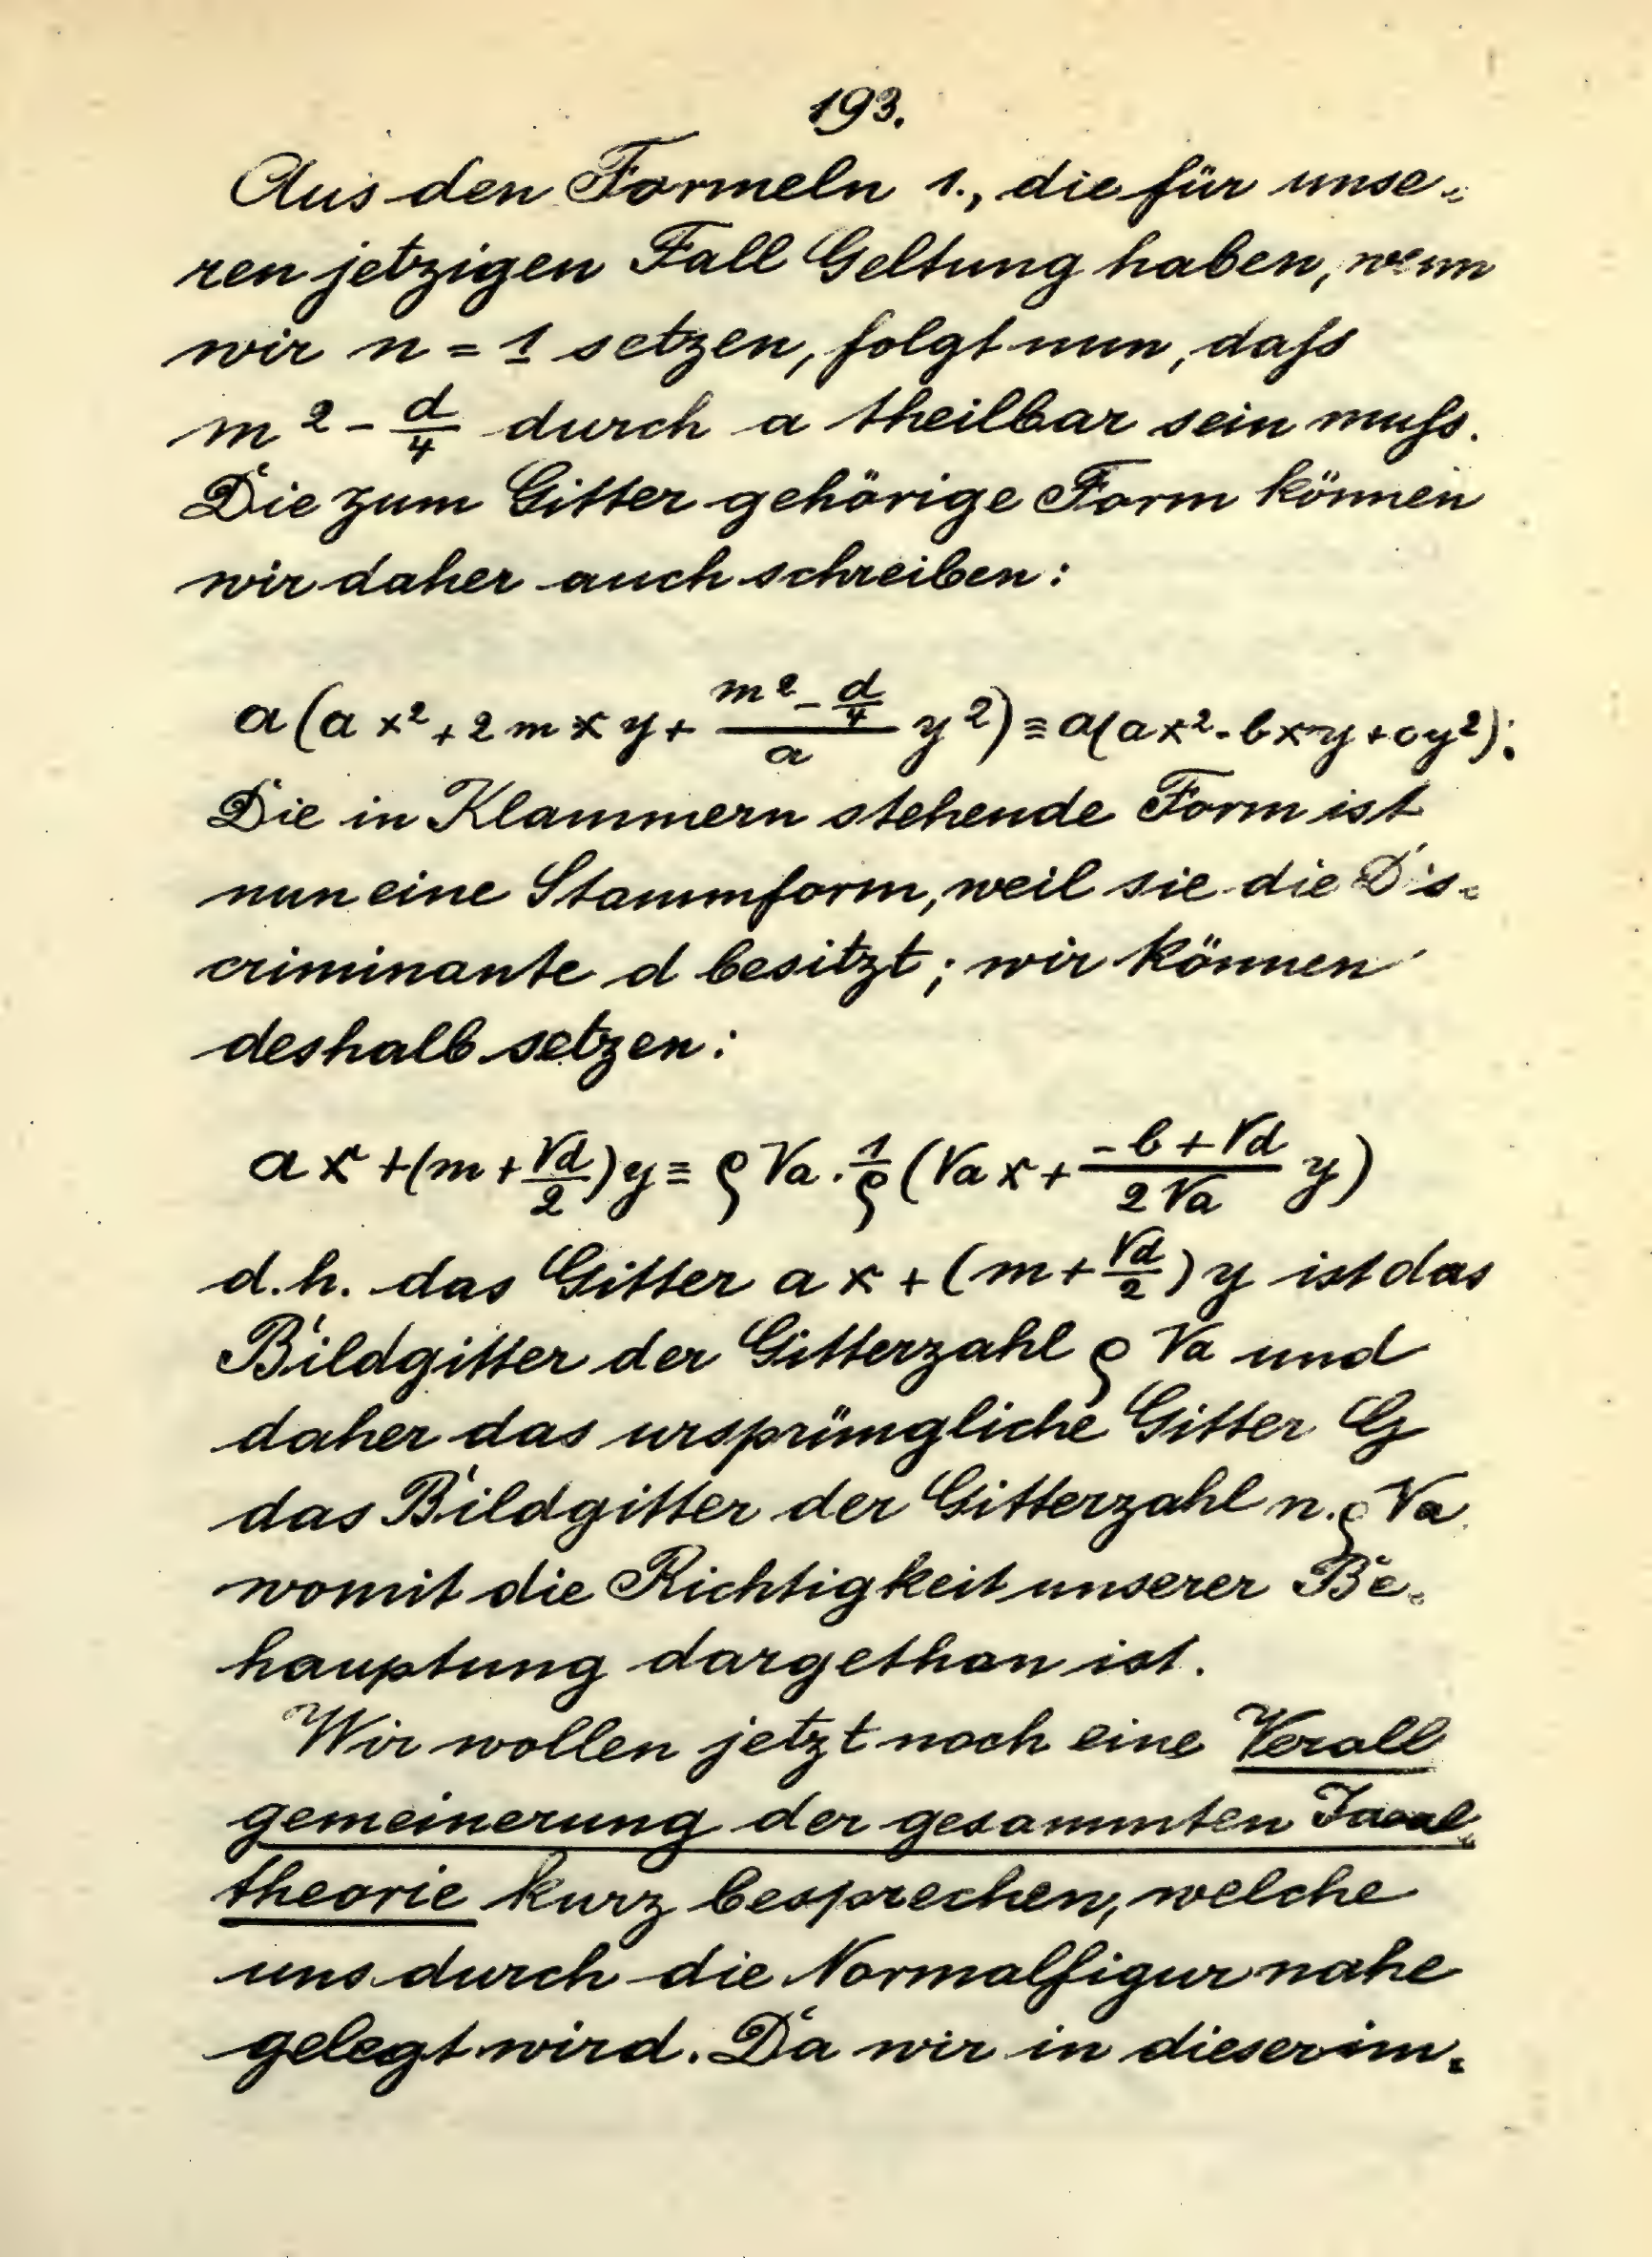 193.
Aus den Formeln 1., die für unse-
ren jetzigen Fall Geltung haben, wenn
wir n = 1 setzen, folgt nun, daſs
m² - d/4 durch a theilbar sein muſs.
Die zum Gitter gehörige Form können
wir daher auch schreiben:
a(ax² + 2mxy + (m² - d/4)/a y²) ≡ a(ax² - bxy + cy²);
Die in Klammern stehende Form ist
nun eine Stammform, weil sie die Dis-
criminante d besitzt; wir können
deshalb setzen:
ax + (m + √d/2)y ≡ ϱ√a · 1/ϱ (√a x + (-b + √d)/(2√a) y)
d.h. das Gitter ax + (m + √d/2)y ist das
Bildgitter der Gitterzahl ϱ√a und
daher das ursprüngliche Gitter G
das Bildgitter der Gitterzahl n.ϱ√a
womit die Richtigkeit unserer Be-
hauptung dargethan ist.
Wir wollen jetzt noch eine Verall
gemeinerung der gesammten Ideal-
theorie kurz besprechen, welche
uns durch die Normalfigur nahe
gelegt wird. Da wir in dieser im-